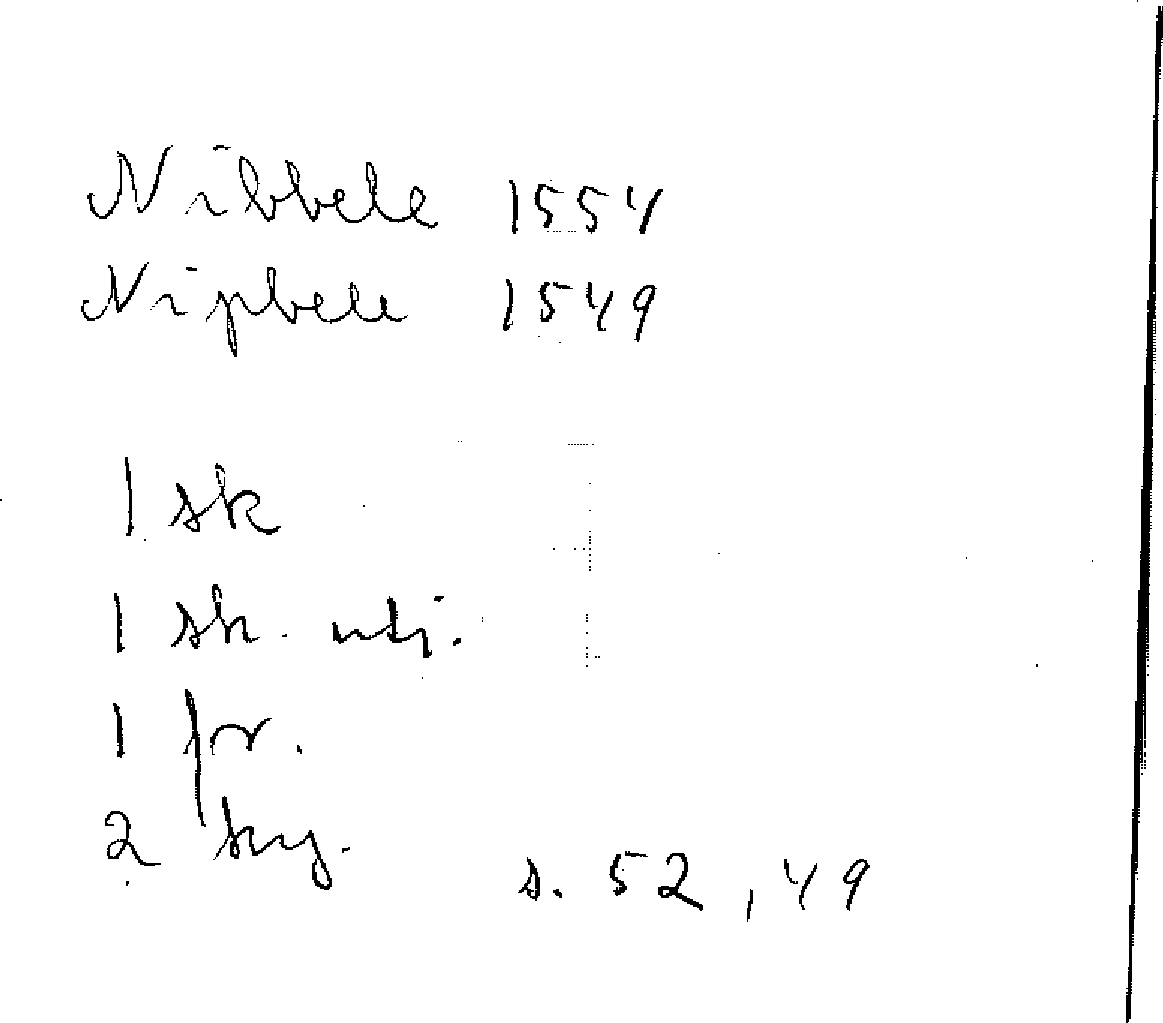 Nibbele 1554
Nipbele 1549
1 sk
1 sk. utj.
1 fr.
2 sny.
s. 52, 49